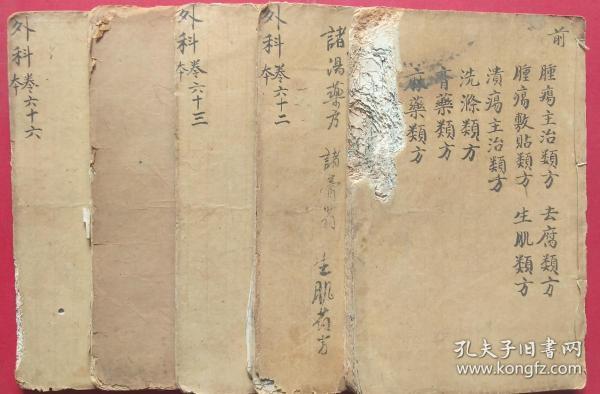 前
腫瘍主治類方 去腐類方
腫瘍敷貼類方 生肌類方
潰瘍主治類方
洗滌類方
膏藥類方
藥類方
諸湯藥方 諸膏 生肌
外科 卷六十二
本
外科 卷六十三
本
外科 卷六十六
本
孔夫子旧书网
www.kongfz.com